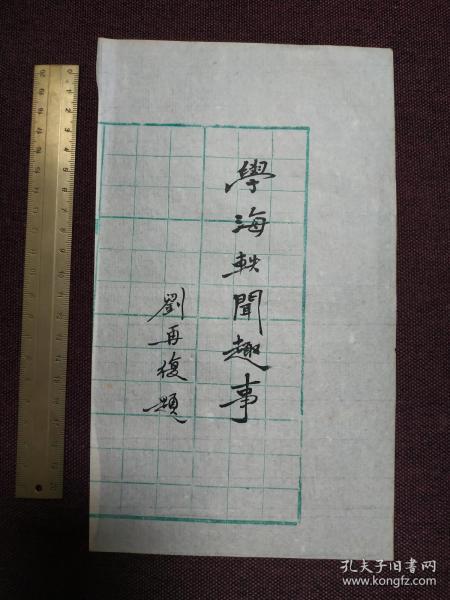 學海軼聞趣事
劉再復題
孔夫子旧书网
www.kongfz.com